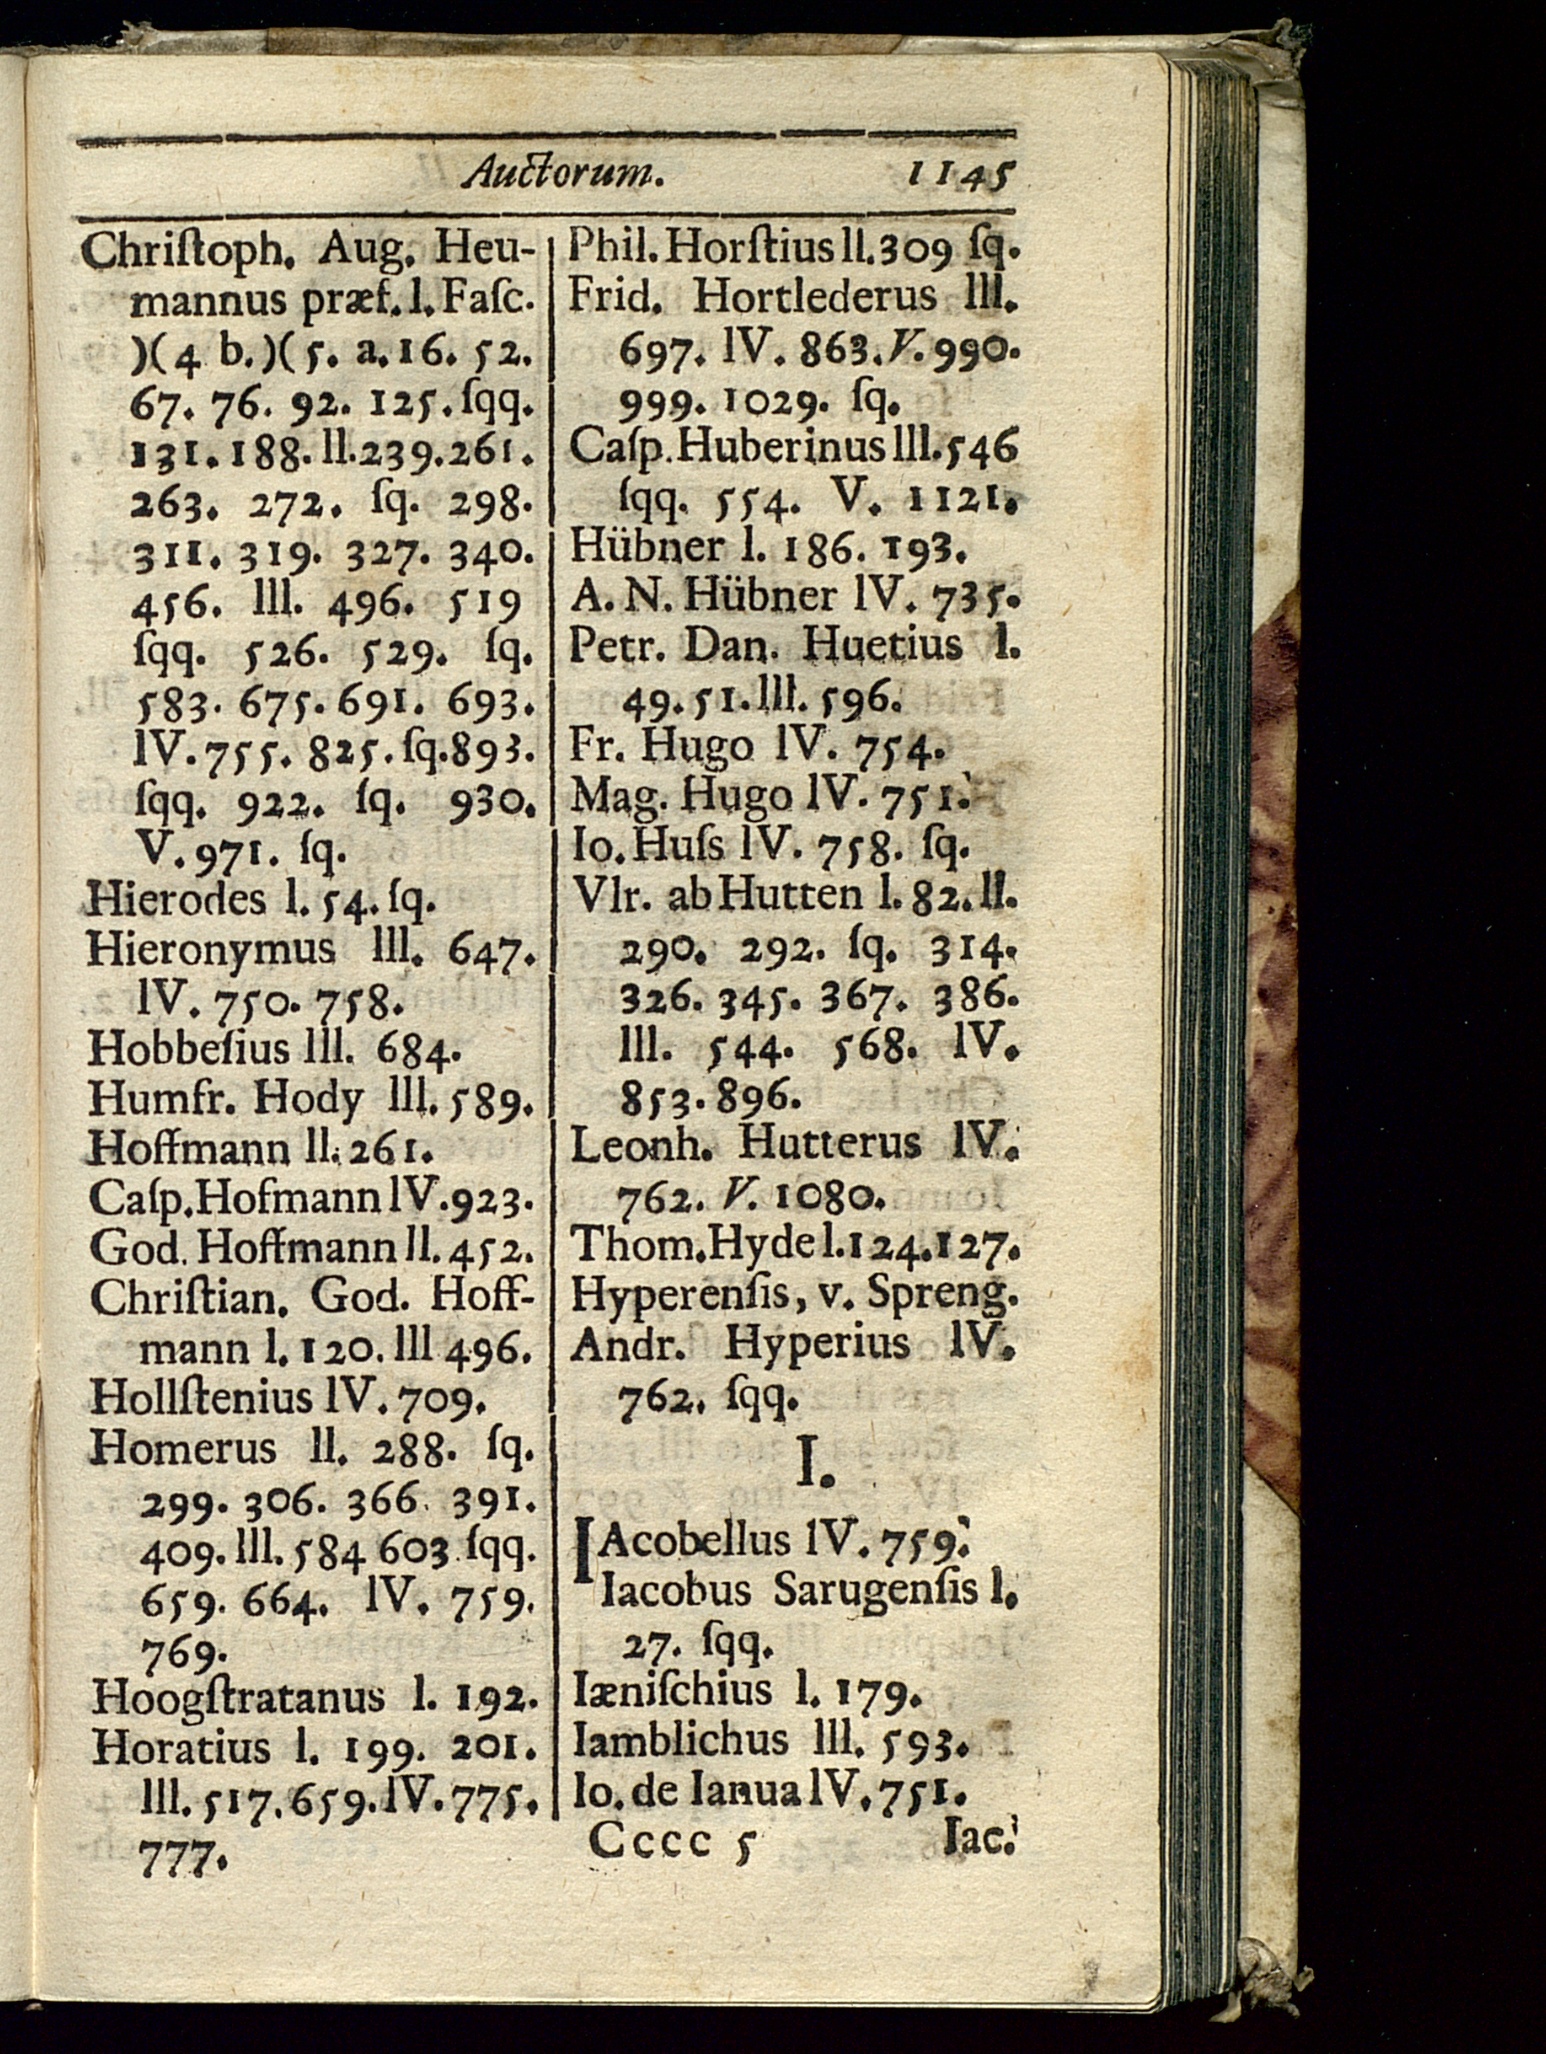 Auctorum. 1145
Chriſtoph. Aug. Heu-
mannus præf. l. Faſc.
)(4 b.)(5. a.16. 52.
67. 76. 92. 125. ſqq.
131. 188. ll.239.261.
263. 272. ſq. 298.
311. 319. 327. 340.
456. lll. 496. 519
ſqq. 526. 529. ſq.
583. 675. 691. 693.
lV. 755. 825. ſq.893.
ſqq. 922. ſq. 930.
V. 971. ſq.
Hierodes l. 54. ſq.
Hieronymus lll. 647.
lV. 750. 758.
Hobbeſius lll. 684.
Humfr. Hody lll. 589.
Hoffmann ll. 261.
Caſp.Hofmann lV.923.
God. Hoffmann ll. 452.
Chriſtian. God. Hoff-
mann l. 120. lll 496.
Hollſtenius lV. 709.
Homerus ll. 288. ſq.
299. 306. 366. 391.
409. lll. 584 603 ſqq.
659. 664. lV. 759.
769.
Hoogſtratanus l. 192.
Horatius l. 199. 201.
lll. 517. 659. lV. 775.
777.
Phil. Horſtius ll.309 ſq.
Frid. Hortlederus lll.
697. lV. 863. V. 990.
999. 1029. ſq.
Caſp.Huberinus lll.546
ſqq. 554. V. 1121.
Hübner l. 186. 193.
A. N. Hübner lV. 735.
Petr. Dan. Huetius l.
49. 51. lll. 596.
Fr. Hugo lV. 754.
Mag. Hugo lV. 751.
Io. Huſs lV. 758. ſq.
Vlr. ab Hutten l. 82. ll.
290. 292. ſq. 314.
326. 345. 367. 386.
lll. 544. 568. lV.
853. 896.
Leonh. Hutterus lV.
762. V. 1080.
Thom.Hyde l.124.127.
Hyperenſis, v. Spreng.
Andr. Hyperius lV.
762. ſqq.
I.
IAcobellus lV. 759.
Iacobus Sarugenſis l.
27. ſqq.
Iæniſchius l. 179.
Iamblichus lll. 593.
Io. de Ianua lV. 751.
Cccc 5 Iac.